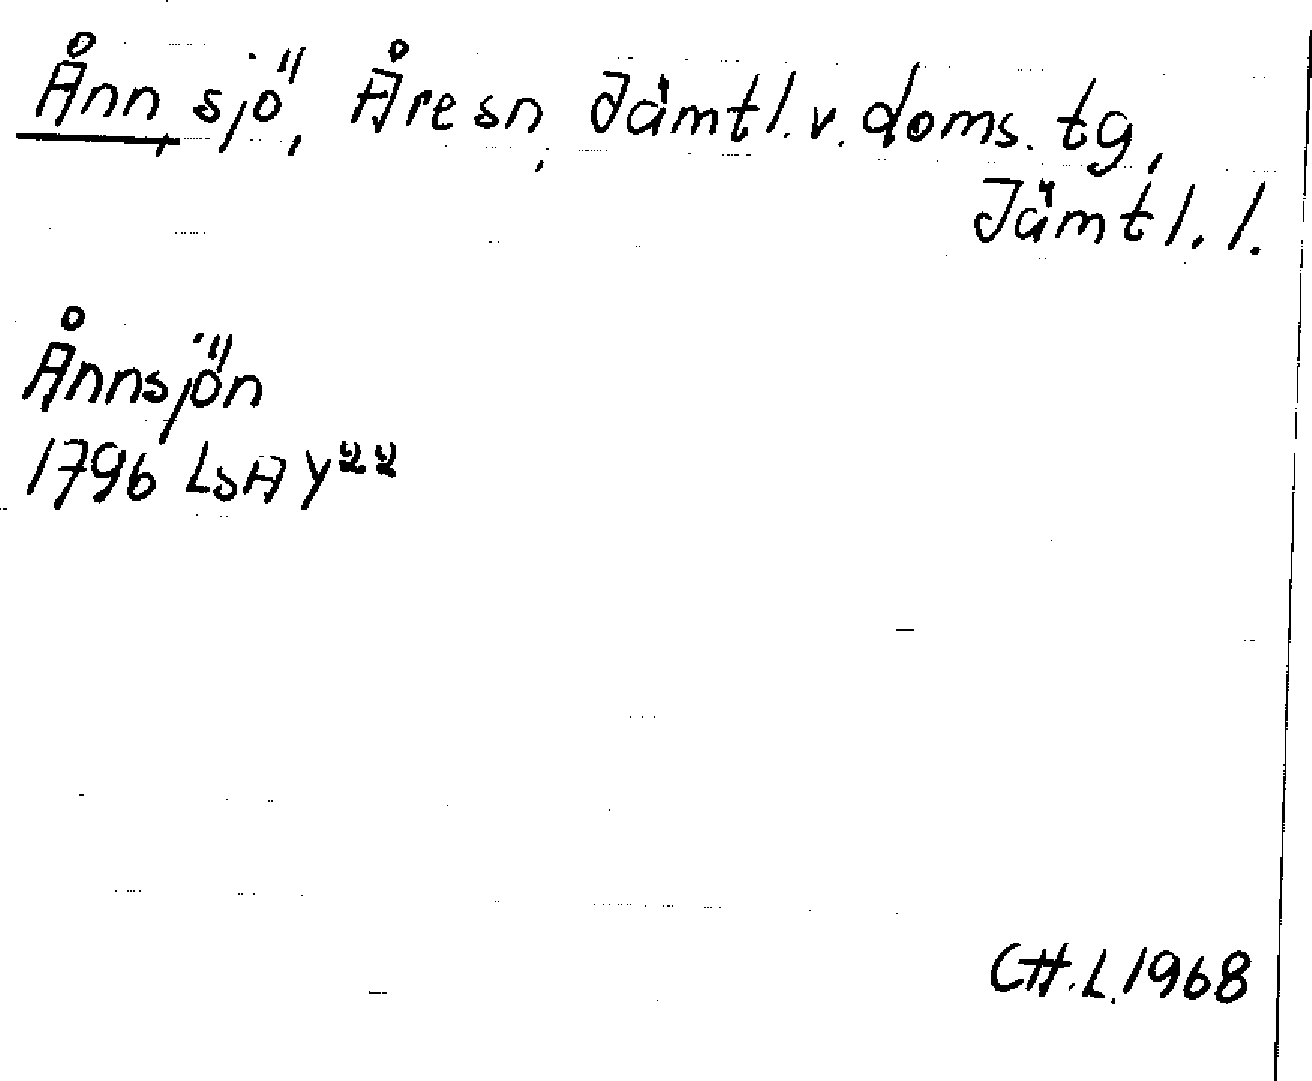 Ånn, sjö, Åre sn, Jämtl. v. doms. tg,
Jämtl. l.
Ånnsjön
1796 LSA Y²²
CH.L. 1968